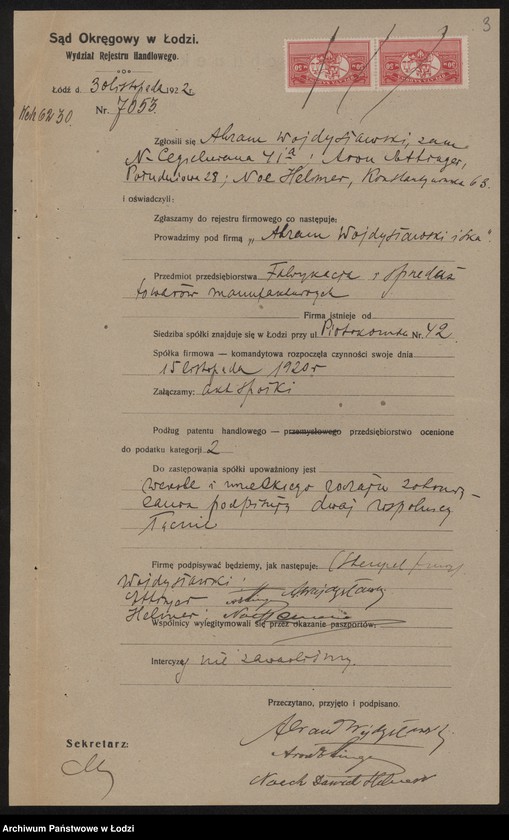 3
Sąd Okręgowy w Łodzi.
Wydział Rejestru Handlowego.
Łódź d. 3 listopada 1922 r.
Nr. 7053
Zgłosili się Abram Wojdysławski, zam.
Cegielniana 41a; Aron
Południowa 28; Noe Helmer, Konstantynowska 63.
i oświadczyli:
Zgłaszamy do rejestru firmowego co następuje:
Prowadzimy pod firmą „Abram Wojdysławski i Ska“.
Przedmiot przedsiębiorstwa Fabrykacja i sprzedaż
towarów manufakturowych
Firma istnieje od
Siedziba spółki znajduje się w Łodzi przy ul. Piotrkowska Nr. 42.
Spółka firmowa — komandytowa rozpoczęła czynności swoje dnia
15 listopada 1920 r
Załączamy: akt spółki
Podług patentu handlowego — przemysłowego przedsiębiorstwo ocenione
do podatku kategorji 2
Do zastępowania spółki upoważniony jest
weksle i wszelkiego rodzaju zobowią-
zania podpisują dwaj wspólnicy
łącznie
Firmę podpisywać będziemy, jak następuje: (Stempel firmy)
Wojdysławski:
Helmer:
Wspólnicy wylegitymowali się przez okazanie paszportów.
Intercyzy nie zawarliśmy.
Przeczytano, przyjęto i podpisano.
Sekretarz:
Noech Dawid Helmer
Archiwum Państwowe w Łodzi